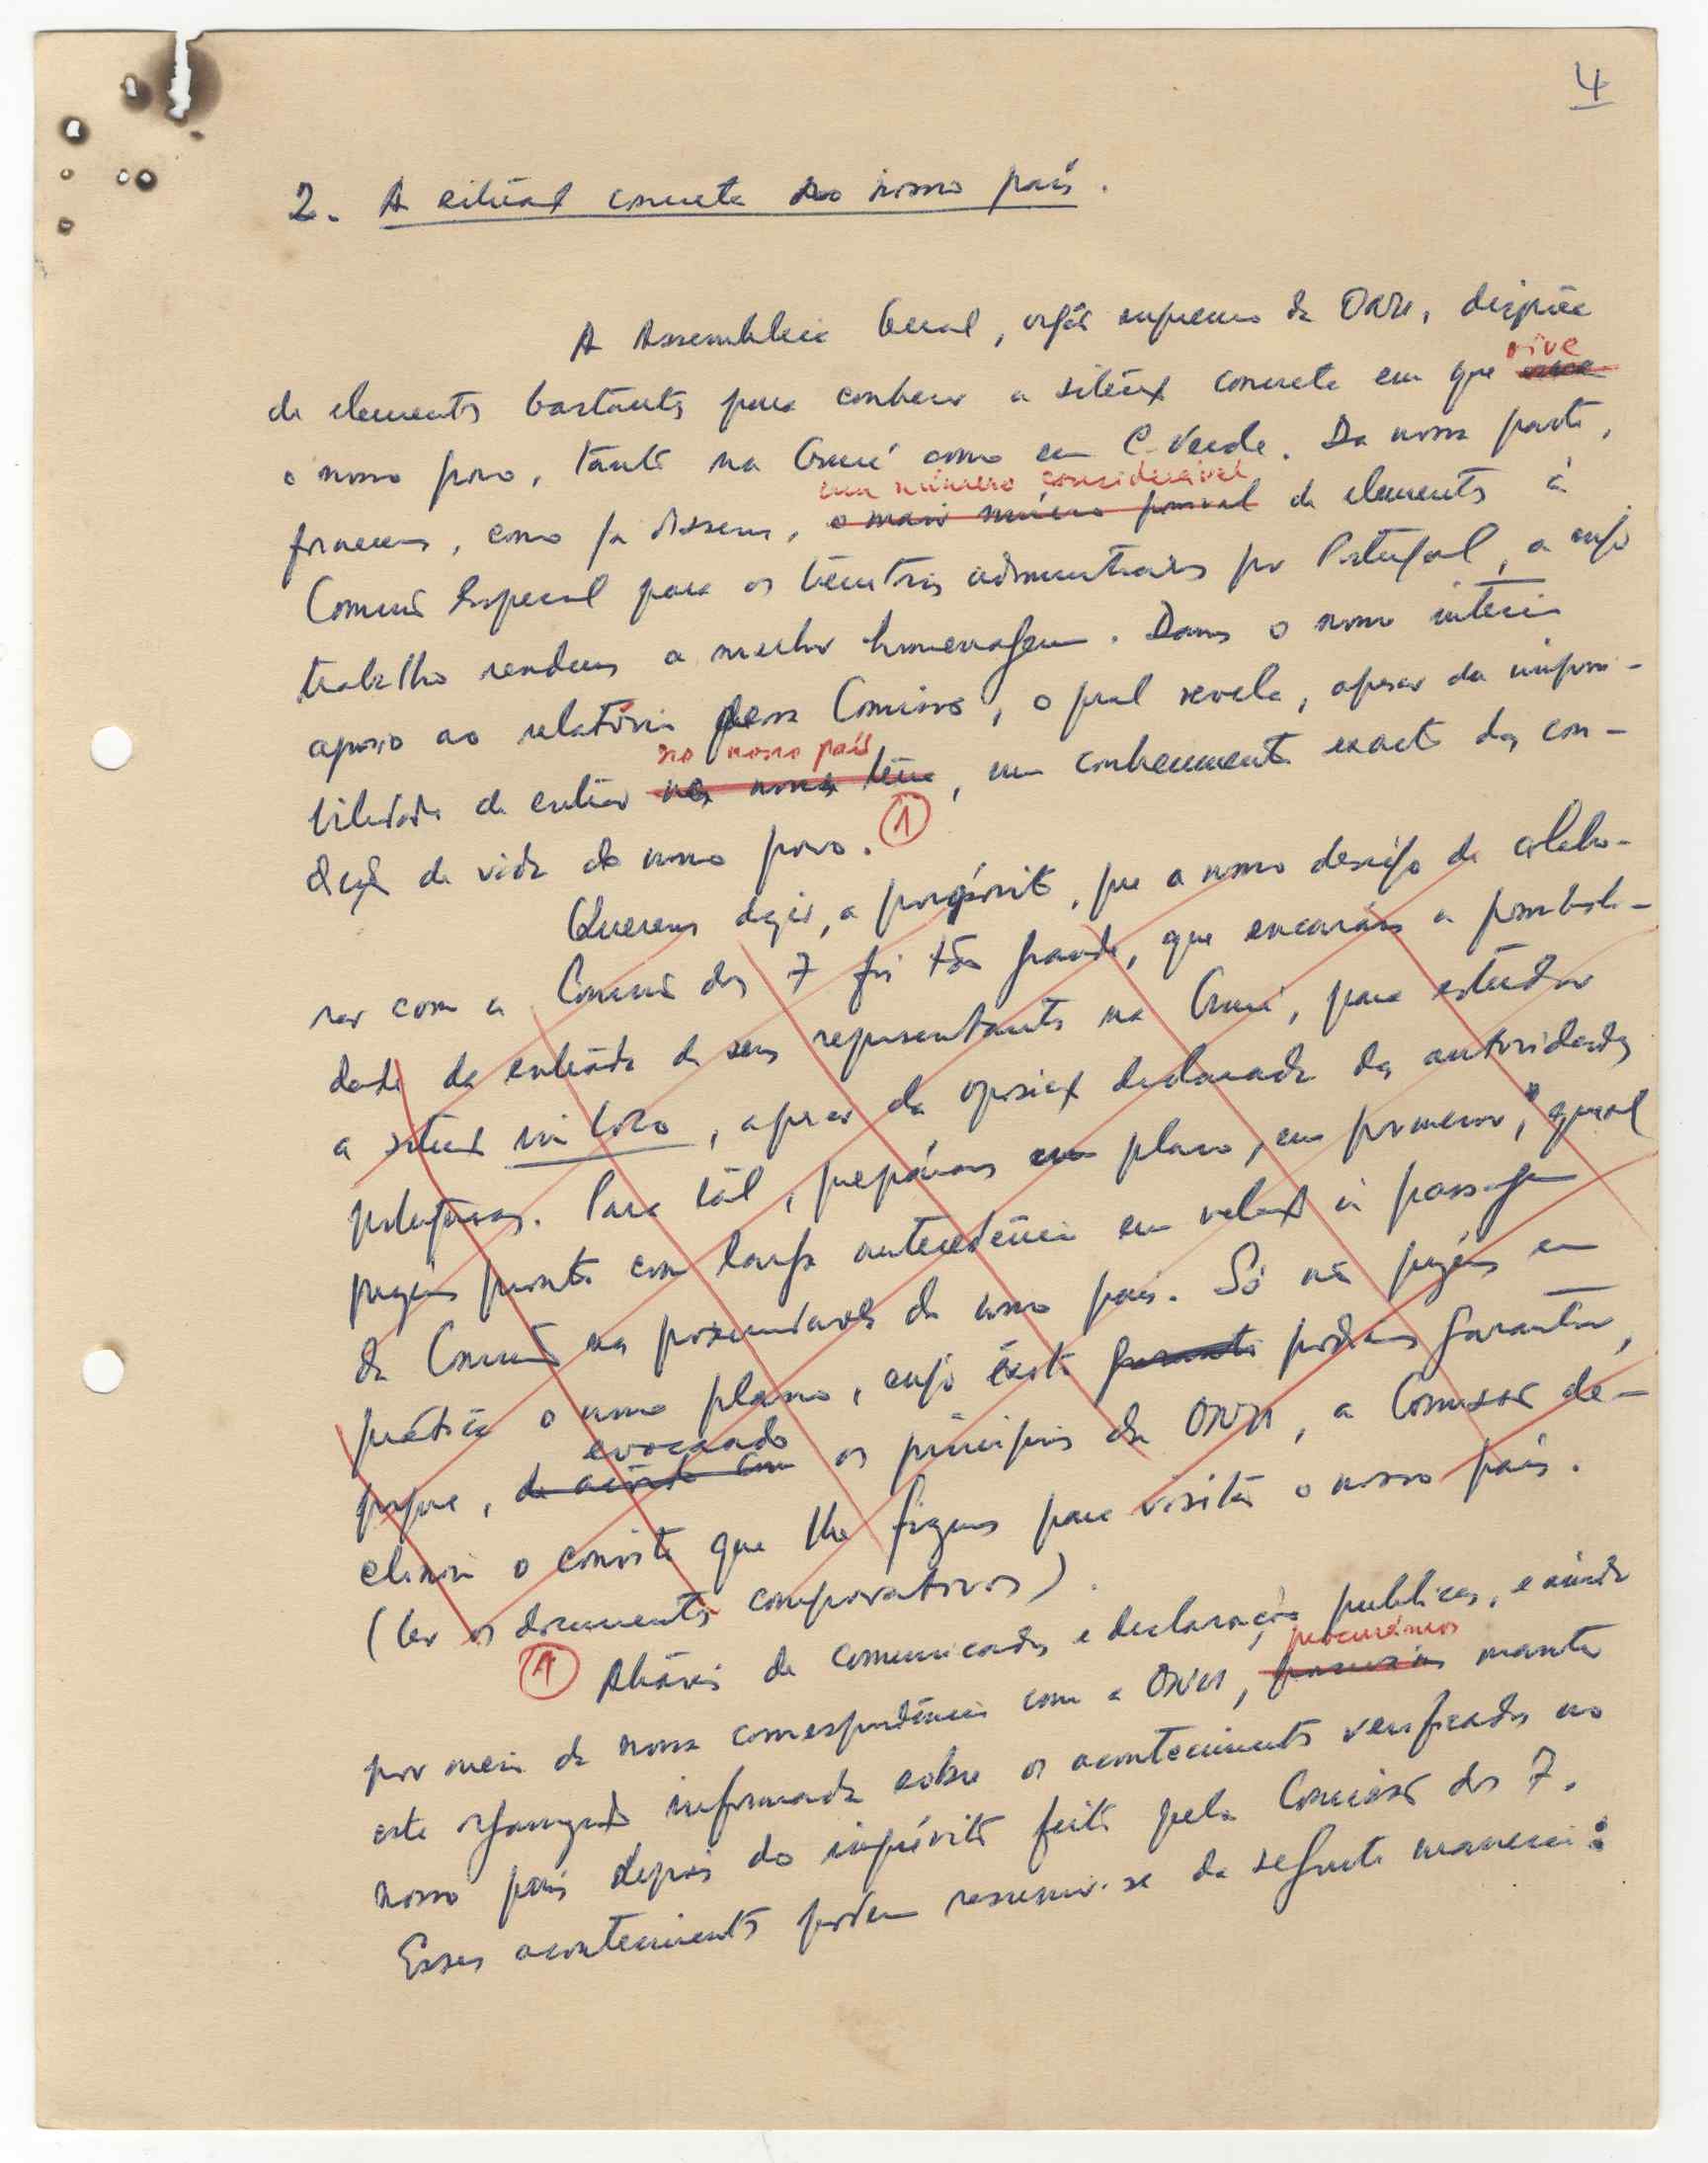 4
2. A situação concreta do nosso país.
A Assembleia Geral, orgão supremo da ONU, dispõe
vive
de elementos bastantes para conhecer a situação concreta em que
o nosso povo, tanto na Guiné como em C. Verde. Da nossa parte,
um número considerável
fornecemos, como já dissemos, o maior número possível de elementos à
Comissão Especial para os territórios administrados por Portugal, a cujo
trabalho rendemos a melhor homenagem. Damos o nosso inteiro
apoio ao relatório dessa Comissão, o qual revela, apesar da impossi-
no nosso país
bilidade de entrar na nossa terra, um conhecimento exacto das con-
dições de vida do nosso povo. 1
Queremos dizer, a propósito, que o nosso desejo de colabo-
rar com a Comissão dos 7 foi tão grande, que encarámos a possibili-
dade da entrada de seus representantes na Guiné, para estudar
a situação in loco, apesar da oposição declarada das autoridades
portuguesas. Para tal, preparámos um plano, em pormenor, o qual
pusemos pronto com larga antecedência em relação à passagem
da Comissão nas proximidades do nosso país. Só não pusemos em
prática o nosso plano, cujo êxito garante podemos garantir,
evocando
porque, de acôrdo com os princípios da ONU, a Comissão de-
clinou o convite que lhe fizemos para visitar o nosso país.
(ler os documentos comprovativos).
1 Através de comunicados e declarações públicas, e ainda
procurámos
por meio da nossa correspondência com a ONU, manter
esta organização informada sobre os acontecimentos verificados no
nosso país depois do inquérito feito pela Comissão dos 7.
Esses acontecimentos podem resumir-se da seguinte maneira: